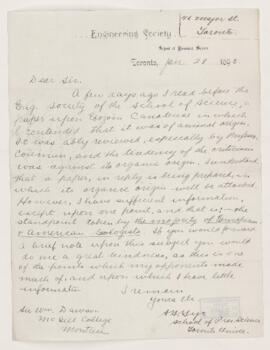 71 Major St.
Toronto.
Engineering Society
School of Practical Science
Toronto, Jan 28 189
Dear Sir,
A few days ago I read before the
Eng. Society of the School of Science, a
paper upon Eozoön Canadense in which
I contended that it was of animal origin.
It was ably reviewed, especially by Professor
Coleman, and the tendency of the criticism
was against its organic origin. I understand
that a paper, in reply is being prepared, in
which its organic origin will be attacked.
However, I have sufficient information,
except upon one point, and that is:- the
standpoint taken by the majority of European
& American Geologists. If you would forward
a brief note upon this subject you would
do me a great kindness, as this is one
of the points which my opponents made
much of, and upon which I have little
information.
I remain
Yours etc
Sir Wm. Dawson
McGill College
Montreal
School of Prac. Science
Toronto Univer.